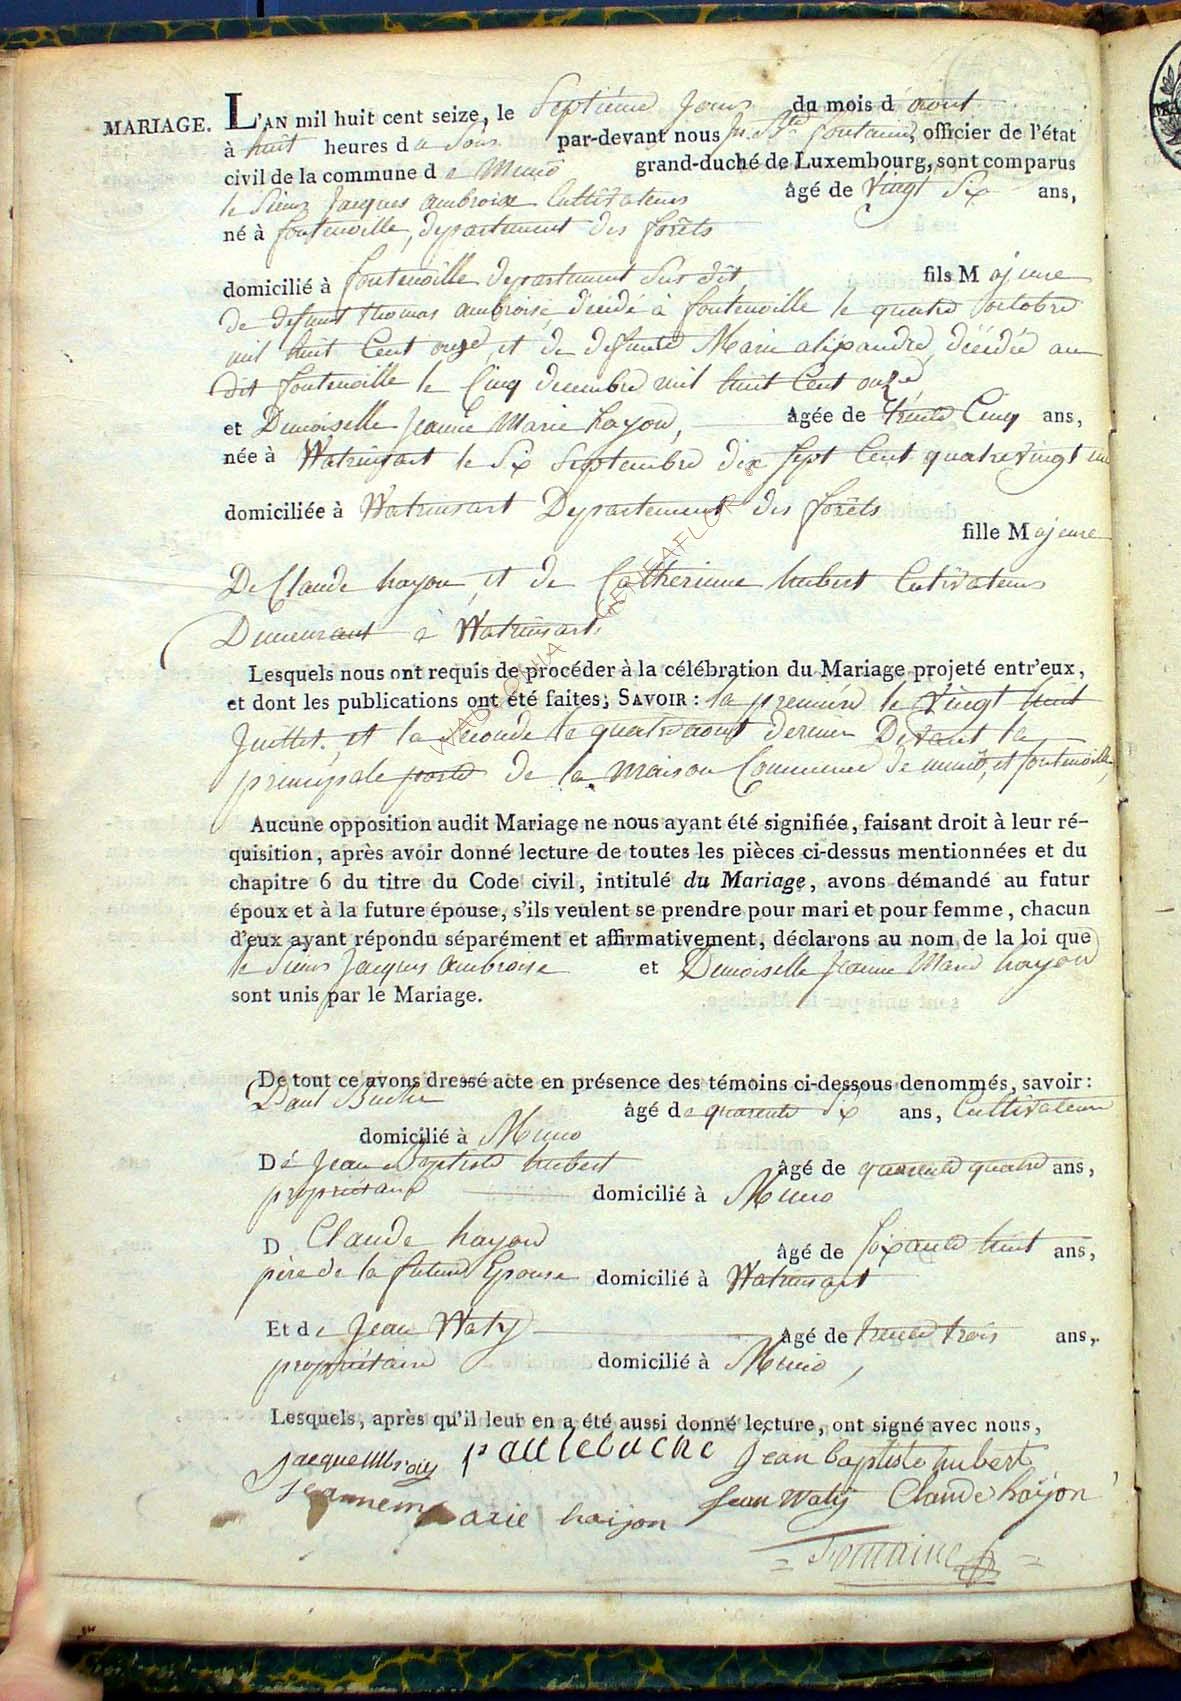 MARIAGE. L'AN mil huit cent seize, le Septième jour du mois d'aout
à huit heures du Soir par-devant nous Jn. Bte fontaine, officier de l'état
civil de la commune de Muno grand-duché de Luxembourg, sont comparus
le Sieur Jacques ambroise Cultivateur âgé de Vingt Six ans,
né à fontenoille, departement des forêts
domicilié à fontenoille departement Sus dit, fils Majeure
de defunt thomas ambroise, décédé à fontenoille le quatre octobre
mil huit Cent onze, et de defunte Marie alexandre, décédée au
dit fontenoille le Cinq decembre mil huit Cent onze
et Demoiselle Jeanne Marie hayon, âgée de trente Cinq ans,
née à Watrinsart le Six Septembre dix Sept Cent quatre vingt un
domiciliée à Watrinsart Departement des forêts
fille Majeure
De Claude hayon, et de Catherinne hubert Cultivateurs
Demeurant à Watrinsart.
Lesquels nous ont requis de procéder à la célébration du Mariage projeté entr'eux,
et dont les publications ont été faites; SAVOIR: la première le Vingt huit
Juillet, et la Seconde le quatre aout dernier Devant la
principale porte de la maison Commune de muno, et fontenoille,
Aucune opposition audit Mariage ne nous ayant été signifiée, faisant droit à leur ré-
quisition, après avoir donné lecture de toutes les pièces ci-dessus mentionnées et du
chapitre 6 du titre du Code civil, intitulé du Mariage, avons démandé au futur
époux et à la future épouse, s'ils veulent se prendre pour mari et pour femme, chacun
d'eux ayant répondu séparément et affirmativement, déclarons au nom de la loi que
le Sieur Jacques ambroise et Demoiselle Jeanne Marie hayon
sont unis par le Mariage.
De tout ce avons dressé acte en présence des témoins ci-dessous denommés, savoir:
Paul Buche âgé de quarente Six ans, Cultivateur
domicilié à Muno
De Jean Baptiste hubert âgé de quarente quatre ans,
propriétaire domicilié à Muno
D Claude hayon âgé de Soixante huit ans,
père de la future Epouse domicilié à Watrinsart
Et de Jean Waty âgé de trente trois ans,
propriétaire domicilié à Muno,
Lesquels, après qu'il leur en a été aussi donné lecture, ont signé avec nous,
paullebuche Jean baptiste hubert
Jeannem marie haijon Jean Watÿ Claude haÿon
Fontaine
WADGONIA GENEAFLOR ©